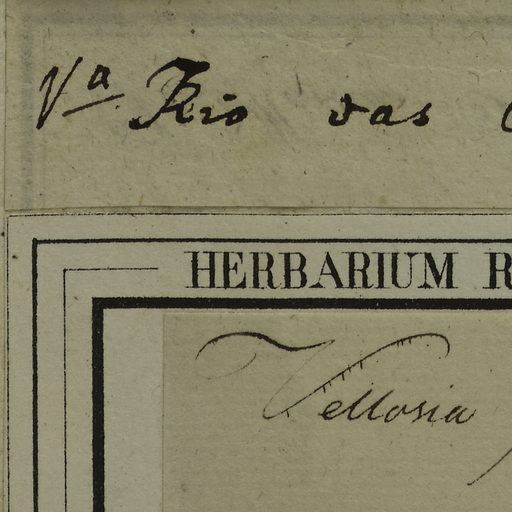 Va Rio das
HERBARIUM R
Vellosia